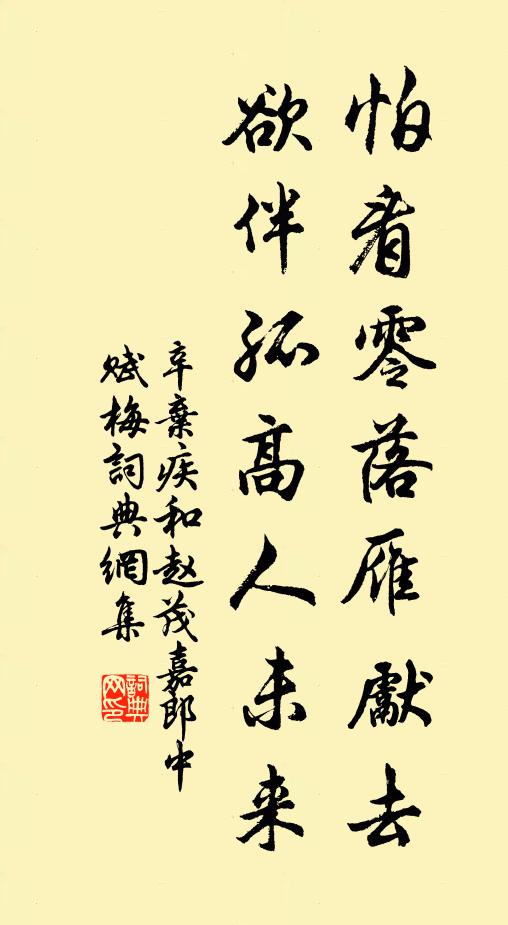 怕看零落雁獻去
欲伴孤高人未来
辛棄疾和赵茂嘉郎中
赋梅詞典網集
詞典
网印